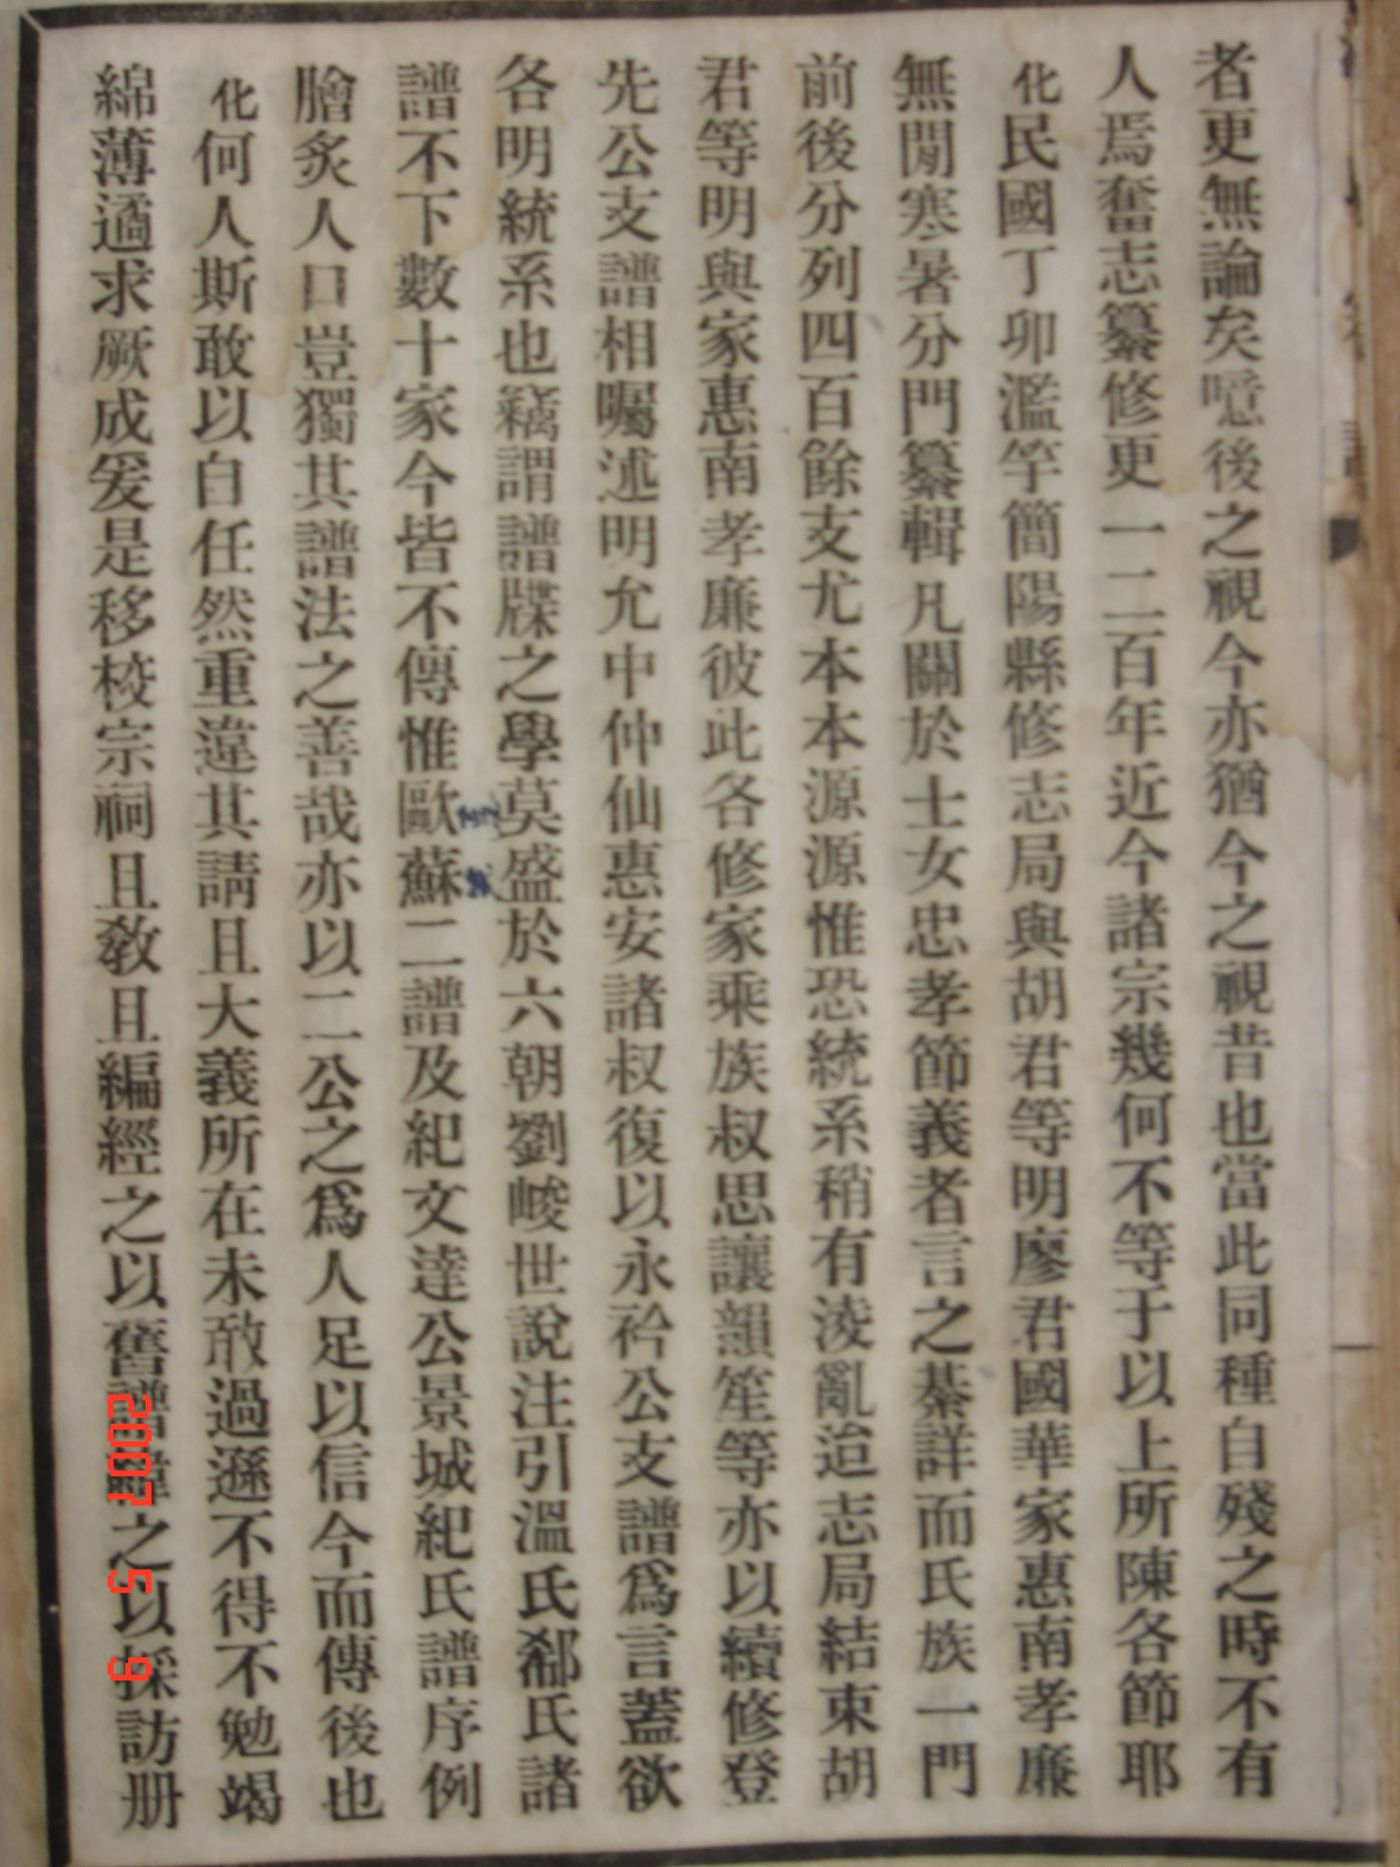 者更無論矣噫後之視今亦猶今之視昔也當此同種自殘之時不有
人焉奮志纂修更一二百年近今諸宗幾何不等于以上所陳各節耶
化民國丁卯濫竽簡陽縣修志局與胡君等明廖君國華家惠南孝廉
無閒寒暑分門纂輯凡關於士女忠孝節義者言之綦詳而氏族一門
前後分列四百餘支尤本本源源惟恐統系稍有淩亂迨志局結束胡
君等明與家惠南孝廉彼此各修家乘族叔思讓韻笙等亦以續修登
先公支譜相囑述明允中仲仙惠安諸叔復以永衿公支譜爲言蓋欲
各明統系也竊謂譜牒之學莫盛於六朝劉峻世說注引溫氏郗氏諸
譜不下數十家今皆不傳惟歐蘇二譜及紀文達公景城紀氏譜序例
膾炙人口豈獨其譜法之善哉亦以二公之爲人足以信今而傳後也
化何人斯敢以自任然重違其請且大義所在未敢過遜不得不勉竭
綿薄遹求厥成爰是移校宗祠且教且編經之以舊譜緯之以採訪册
2007 5 9